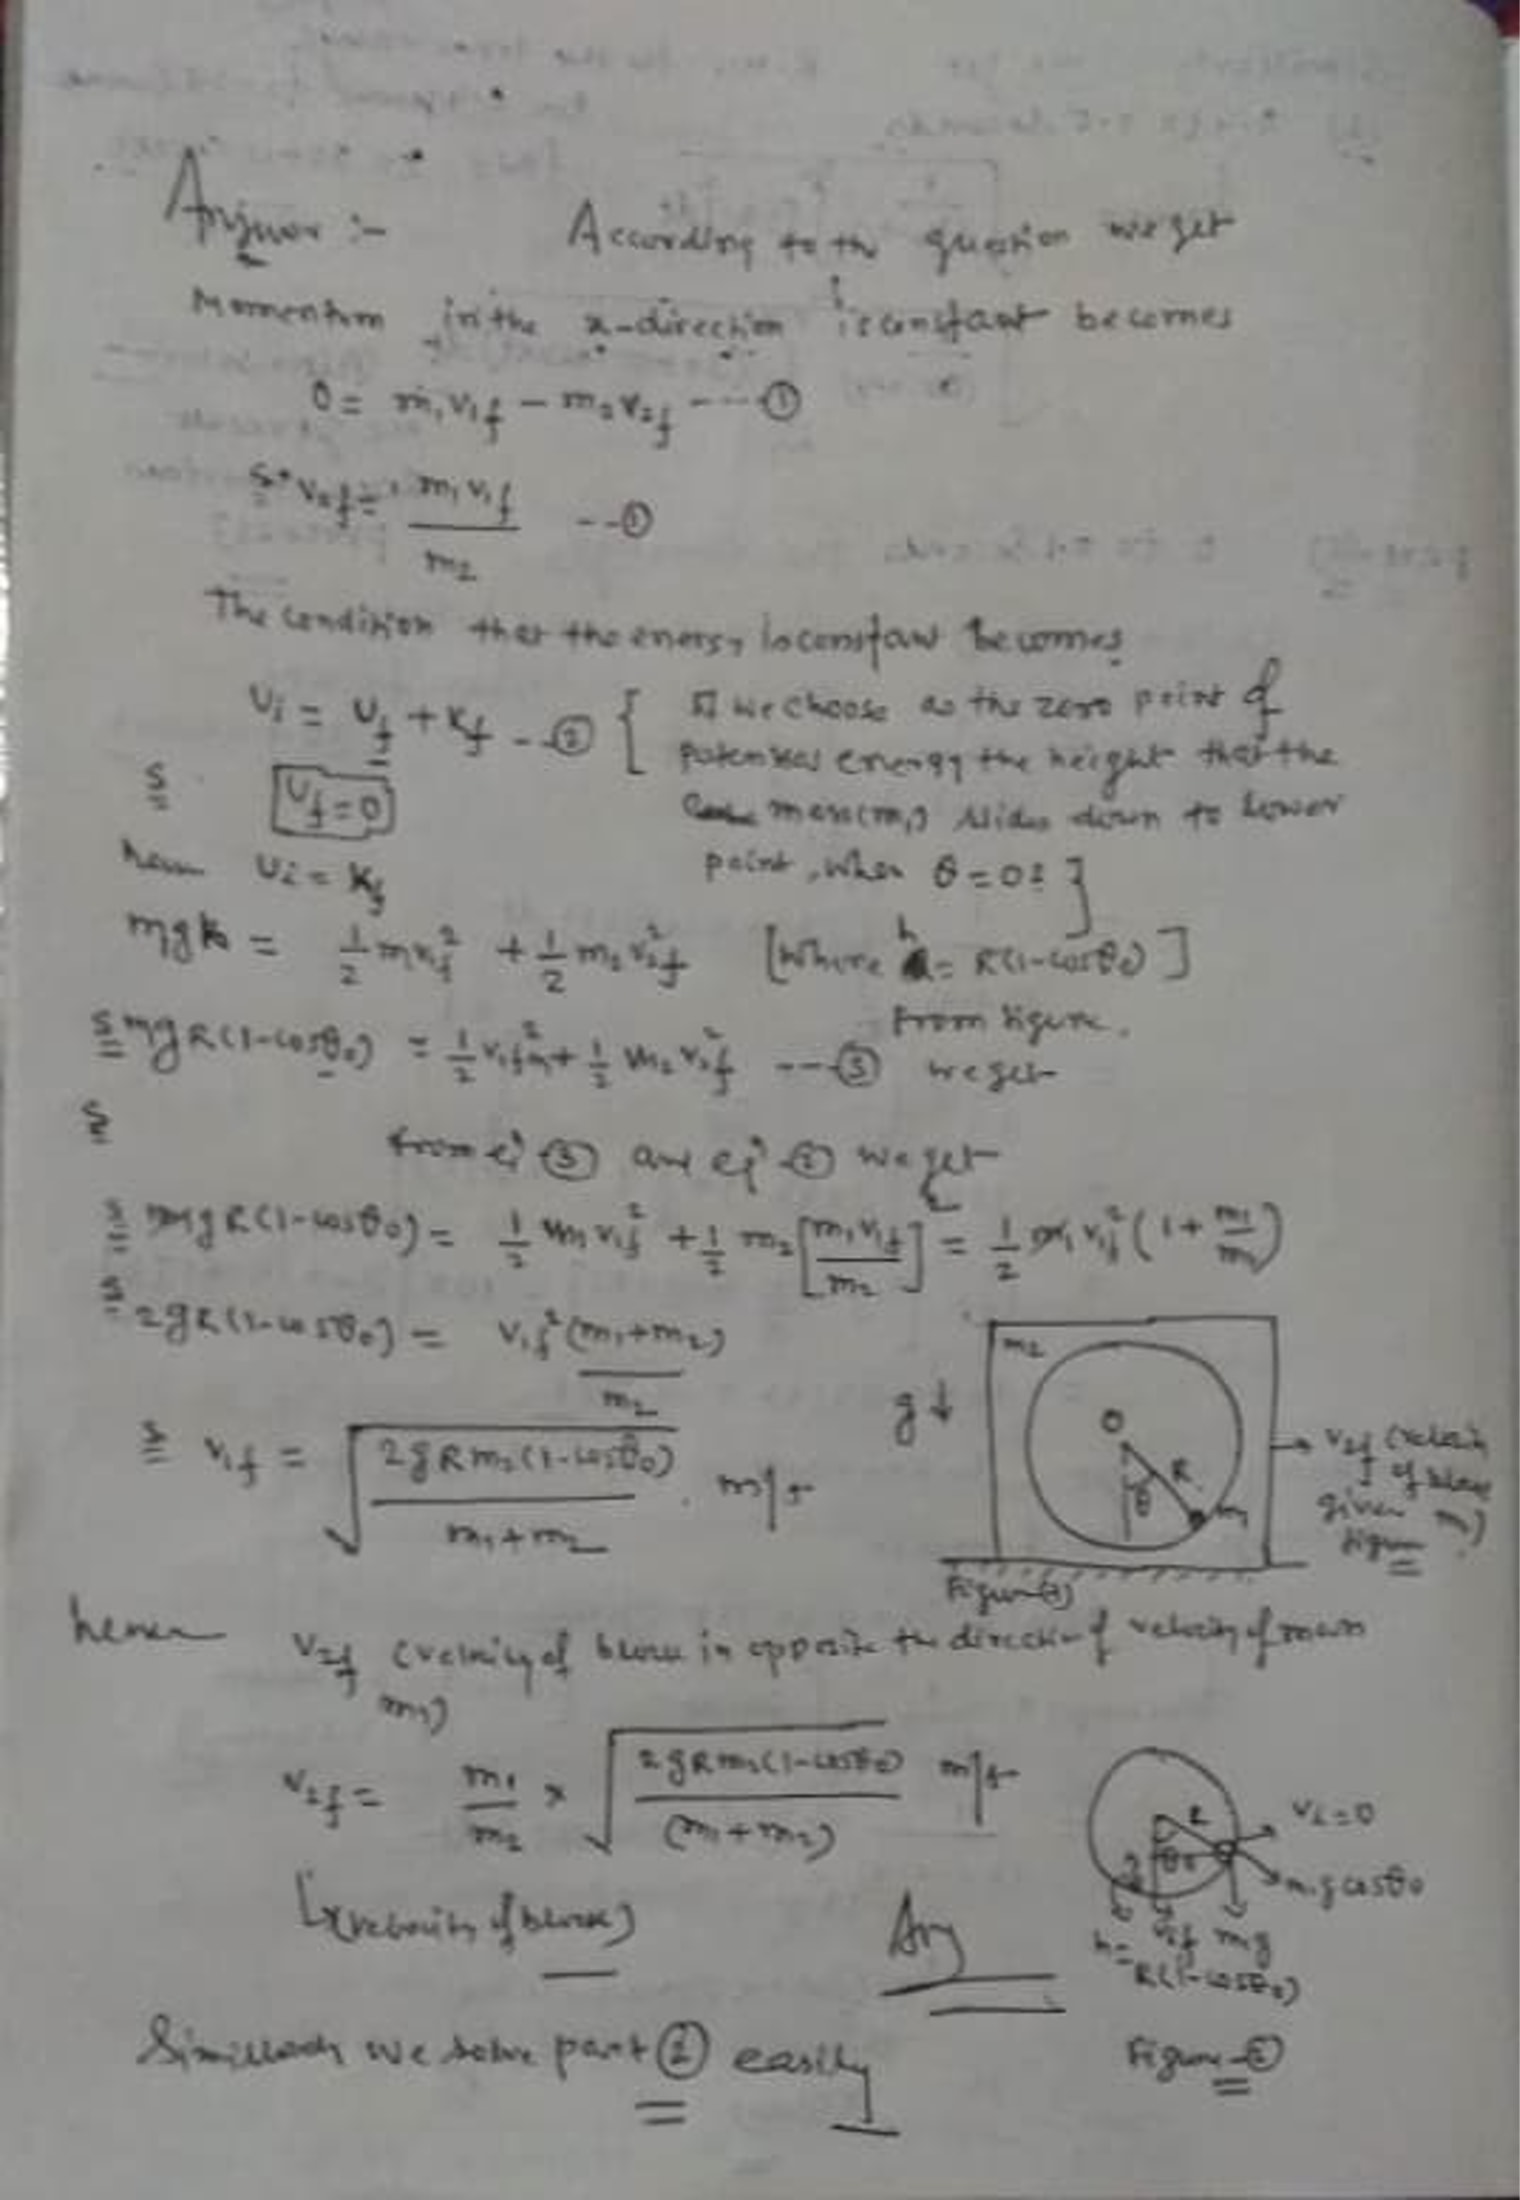 Answer :- According to the question we get
Momentum in the x-direction is constant becomes
0 = m₁v₁f − m₂v₂f ---①
v₂f = m₁v₁f / m₂ --①
The condition that the energy is constant becomes
Ui = Uf + Kf --② { If we choose as the zero point of
potential energy the height that the
Uf = 0
mass(m₁) slides down to lower
hence Ui = Kf
point, when θ = 0 }
mgh = 1/2 mv₁f² + 1/2 m₂v₂f² [where h = R(1-cosθ₀)]
From figure.
mgR(1-cosθ₀) = 1/2 v₁f²m + 1/2 m₂v₂f² ---③ we get
from eqⁿ ③ and eqⁿ ② we get
mgR(1-cosθ₀) = 1/2 m₁v₁f² + 1/2 m₂[m₁v₁f / m₂] = 1/2 m₁v₁f²(1 + m₁/m₂)
2gR(1-cosθ₀) = v₁f²(m₁+m₂) / m₂
m₂
g↓
O
R
θ
m₁
v₂f (velocity
of block
given
figure
v₁f = √(2gRm₂(1-cosθ₀) / m₁+m₂) m/s
Figure
hence v₂f (velocity of block in opposite the direction of velocity of mass
m₁)
v₂f = m₁/m₂ × √(2gRm₂(1-cosθ₀) / (m₁+m₂)) m/s
(velocity of block)
Ans
R
θ₀
vi=0
m₁gcosθ₀
mg
h=
R(1-cosθ₀)
we solve part ② easily
Figure-②